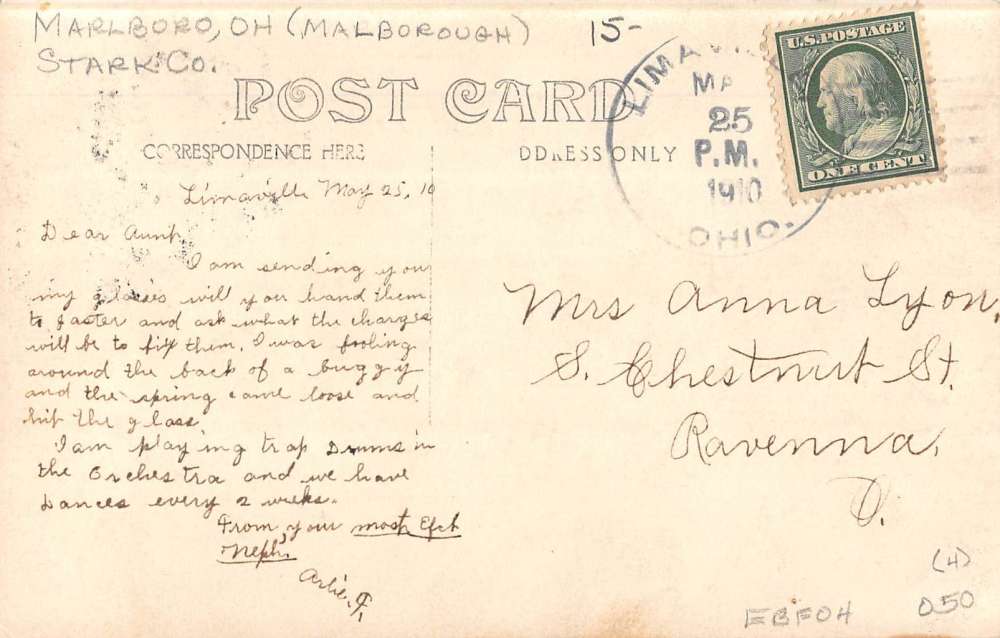 MARLBORO, OH (MALBOROUGH)
15-
STARK CO.
POST CARD
CORRESPONDENCE HERE
DDRESS ONLY
U.S. POSTAGE
ONE CENT
LIMAVI
MA
25
P.M.
1910
OHIO.
Limaville May 25, 10
Dear Aunt,
I am sending you
my glasses will you hand them
to and ask what the charges
will be to fix them. I was fooling
around the back of a buggy
and the spring came loose and
hit the glass.
I am playing trap Drums in
the Orchestra and we have
Dances every 2 weeks.
From your most
Neph.
Mrs Anna Lyon,
S. Chestnut St.
Ravenna,
O.
(4)
EBF04
050